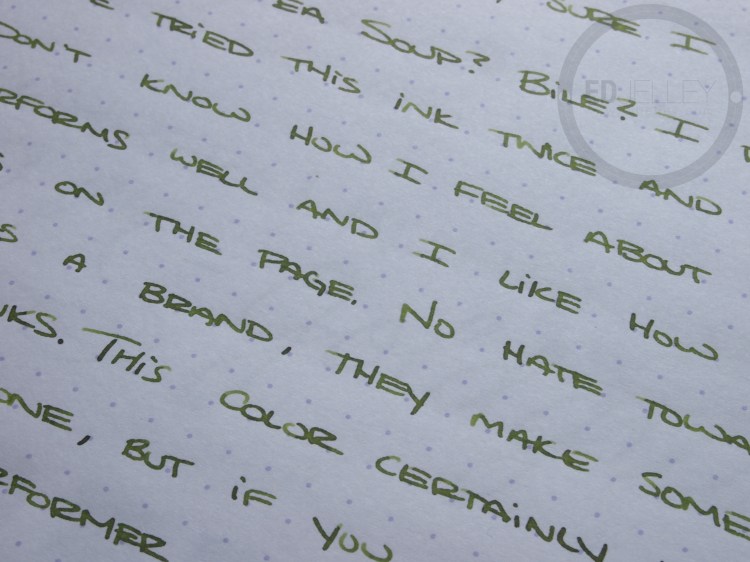 SURE I
EA SOUP? BILE? I
E TRIED THIS INK TWICE AND
DON'T KNOW HOW I FEEL ABOUT
RFORMS WELL AND I LIKE HOW
S ON THE PAGE. NO HATE TOWA
S A BRAND, THEY MAKE SOME
NKS. THIS COLOR CERTAINLY
ONE, BUT IF YOU
RFORMER
ED JELLEY